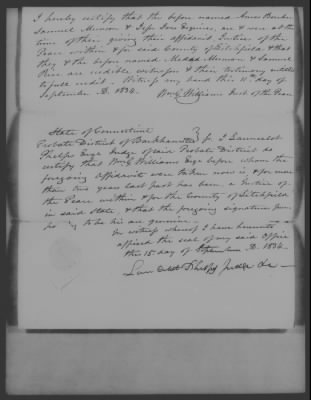 I hereby certify that the before named Amos Beecher
Samuel Munson & Jesse Ives Esquires, are & were at the
time of their giving their affidavits Justices of the
Peace within & for said County of Litchfield & that
they & the before named Medad Munson & Samuel
Rice are credible witnesses & their testimony entitled
to full credit. Witness my hand this 11th day of
September A.D. 1834.
Wm G. Williams Just of the Peace
State of Connecticut
Probate District of Barkhamsted } ss. I Launcelot
Phelps Esqr Judge of said Probate District do
certify that Wm G. Williams Esqr before whom the
foregoing affidavits were taken now is, & for more
than two years last past has been, a Justice of
the Peace within & for the County of Litchfield
in said State, & that the foregoing signature pur-
porting to be his are genuine.
In witness whereof I have hereunto
affixed the seal of my said Office
this 15 day of September A.D. 1834.
Launcelot Phelps Judge &c